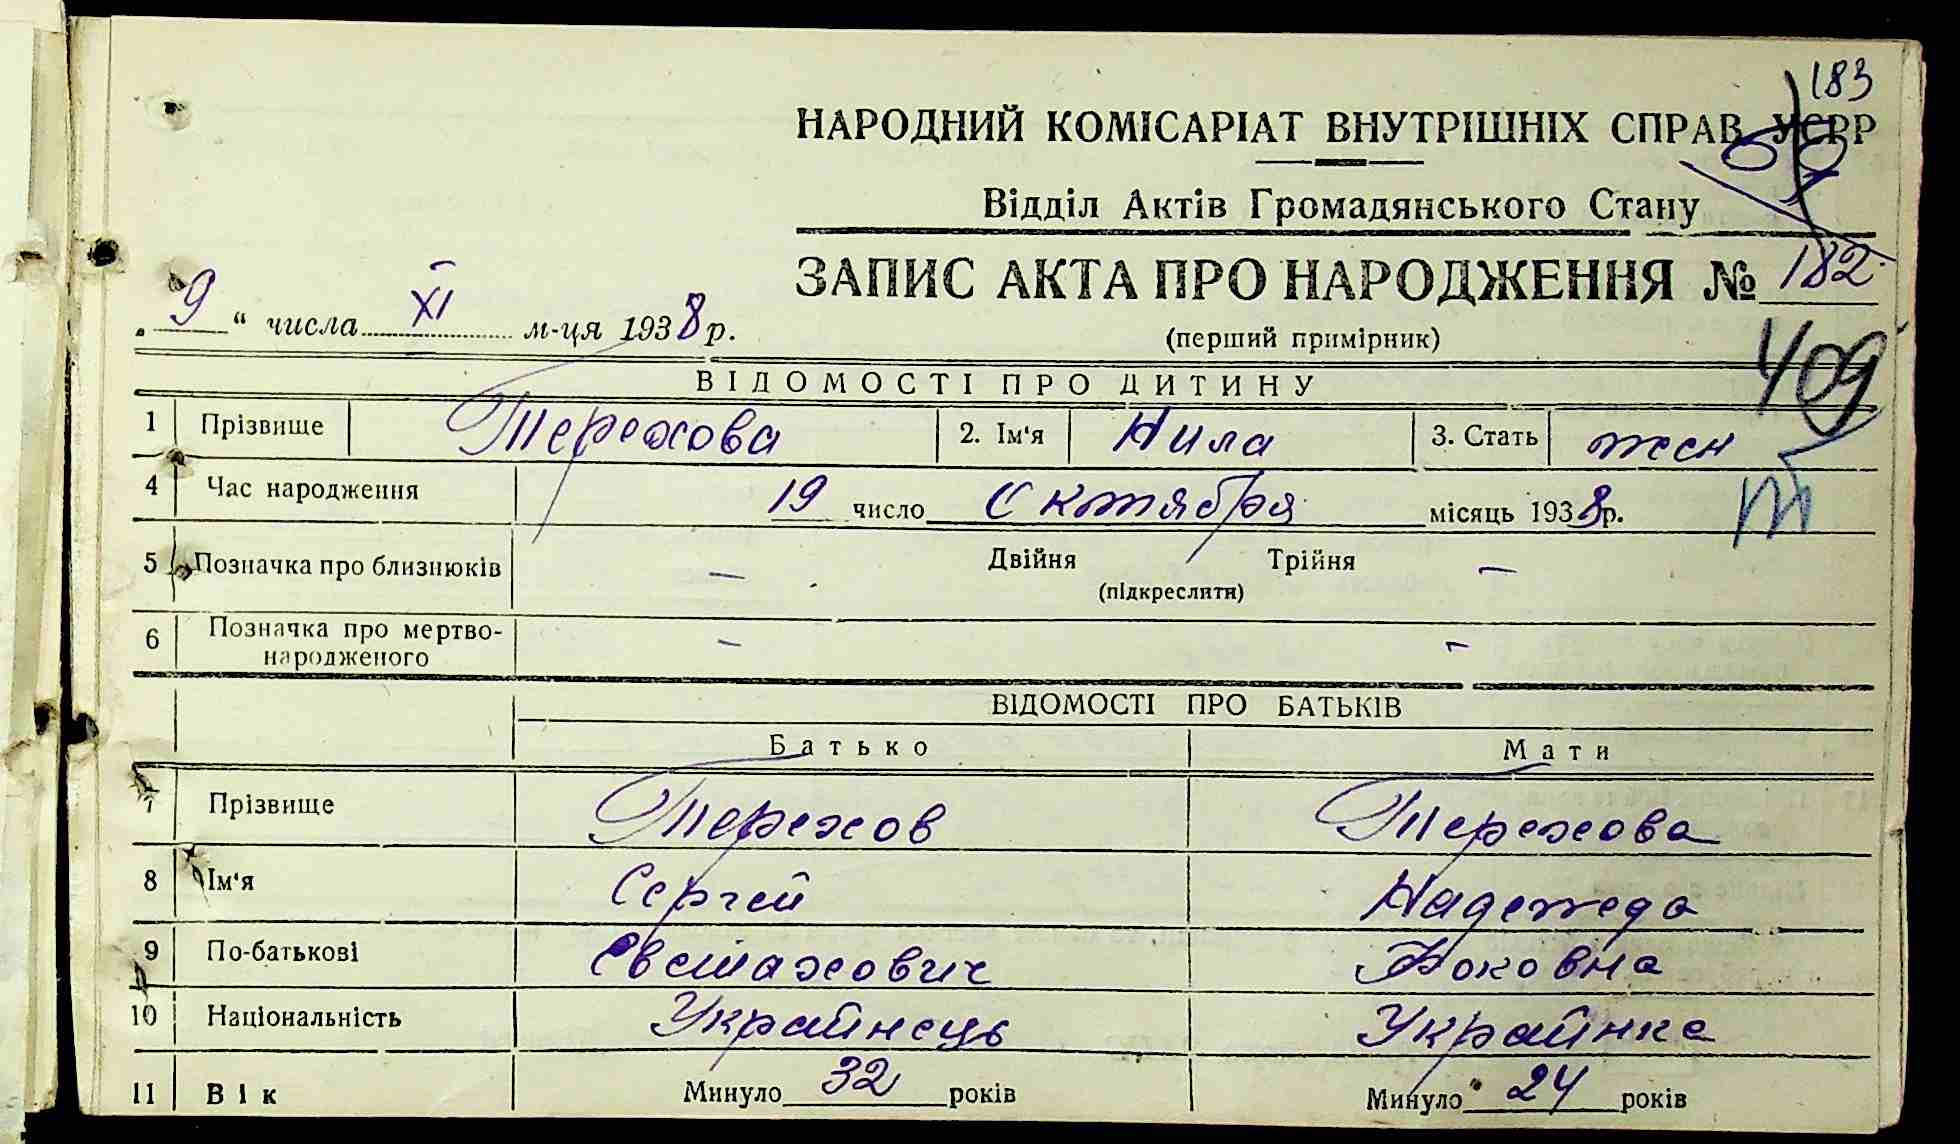 183
НАРОДНИЙ КОМІСАРІАТ ВНУТРІШНІХ СПРАВ УСРР
Відділ Актів Громадянського Стану
ЗАПИС АКТА ПРО НАРОДЖЕННЯ № 182
„ 9 “ числа XI м-ця 1938 р.
(перший примірник)
409
ВІДОМОСТІ ПРО ДИТИНУ
1 Прізвище Терехова 2. Ім'я Нила 3. Стать жен
4 Час народження 19 число Октября місяць 1938 р.
5 Позначка про близнюків — Двійня Трійня —
(підкреслити)
6 Позначка про мертво-
народженого — -
ВІДОМОСТІ ПРО БАТЬКІВ
Батько Мати
7 Прізвище Терехов Терехова
8 Ім'я Сергей Надежда
9 По-батькові Евстахович
10 Національність Українець Українка
11 Вік Минуло 32 років Минуло 24 років